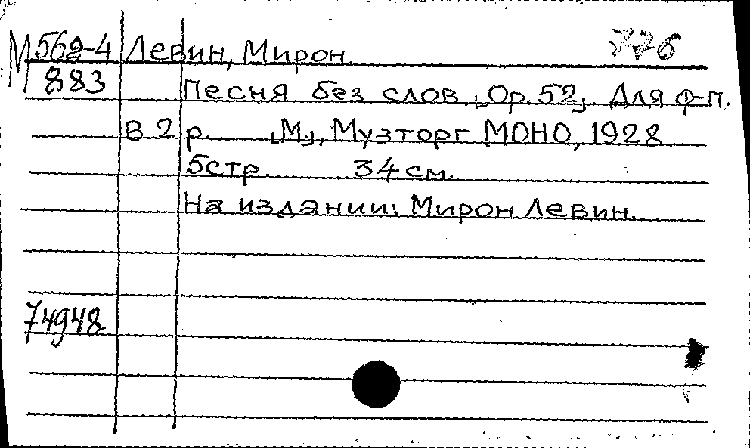 М 562-4 Левин, Мирон. 776
883
Песня без слов. [Ор. 52]. Для ф-п.
В 2 р. [М], Музторг МОНО, 1928
5 стр. 34 см.
На издании: Мирон Левин.
74948